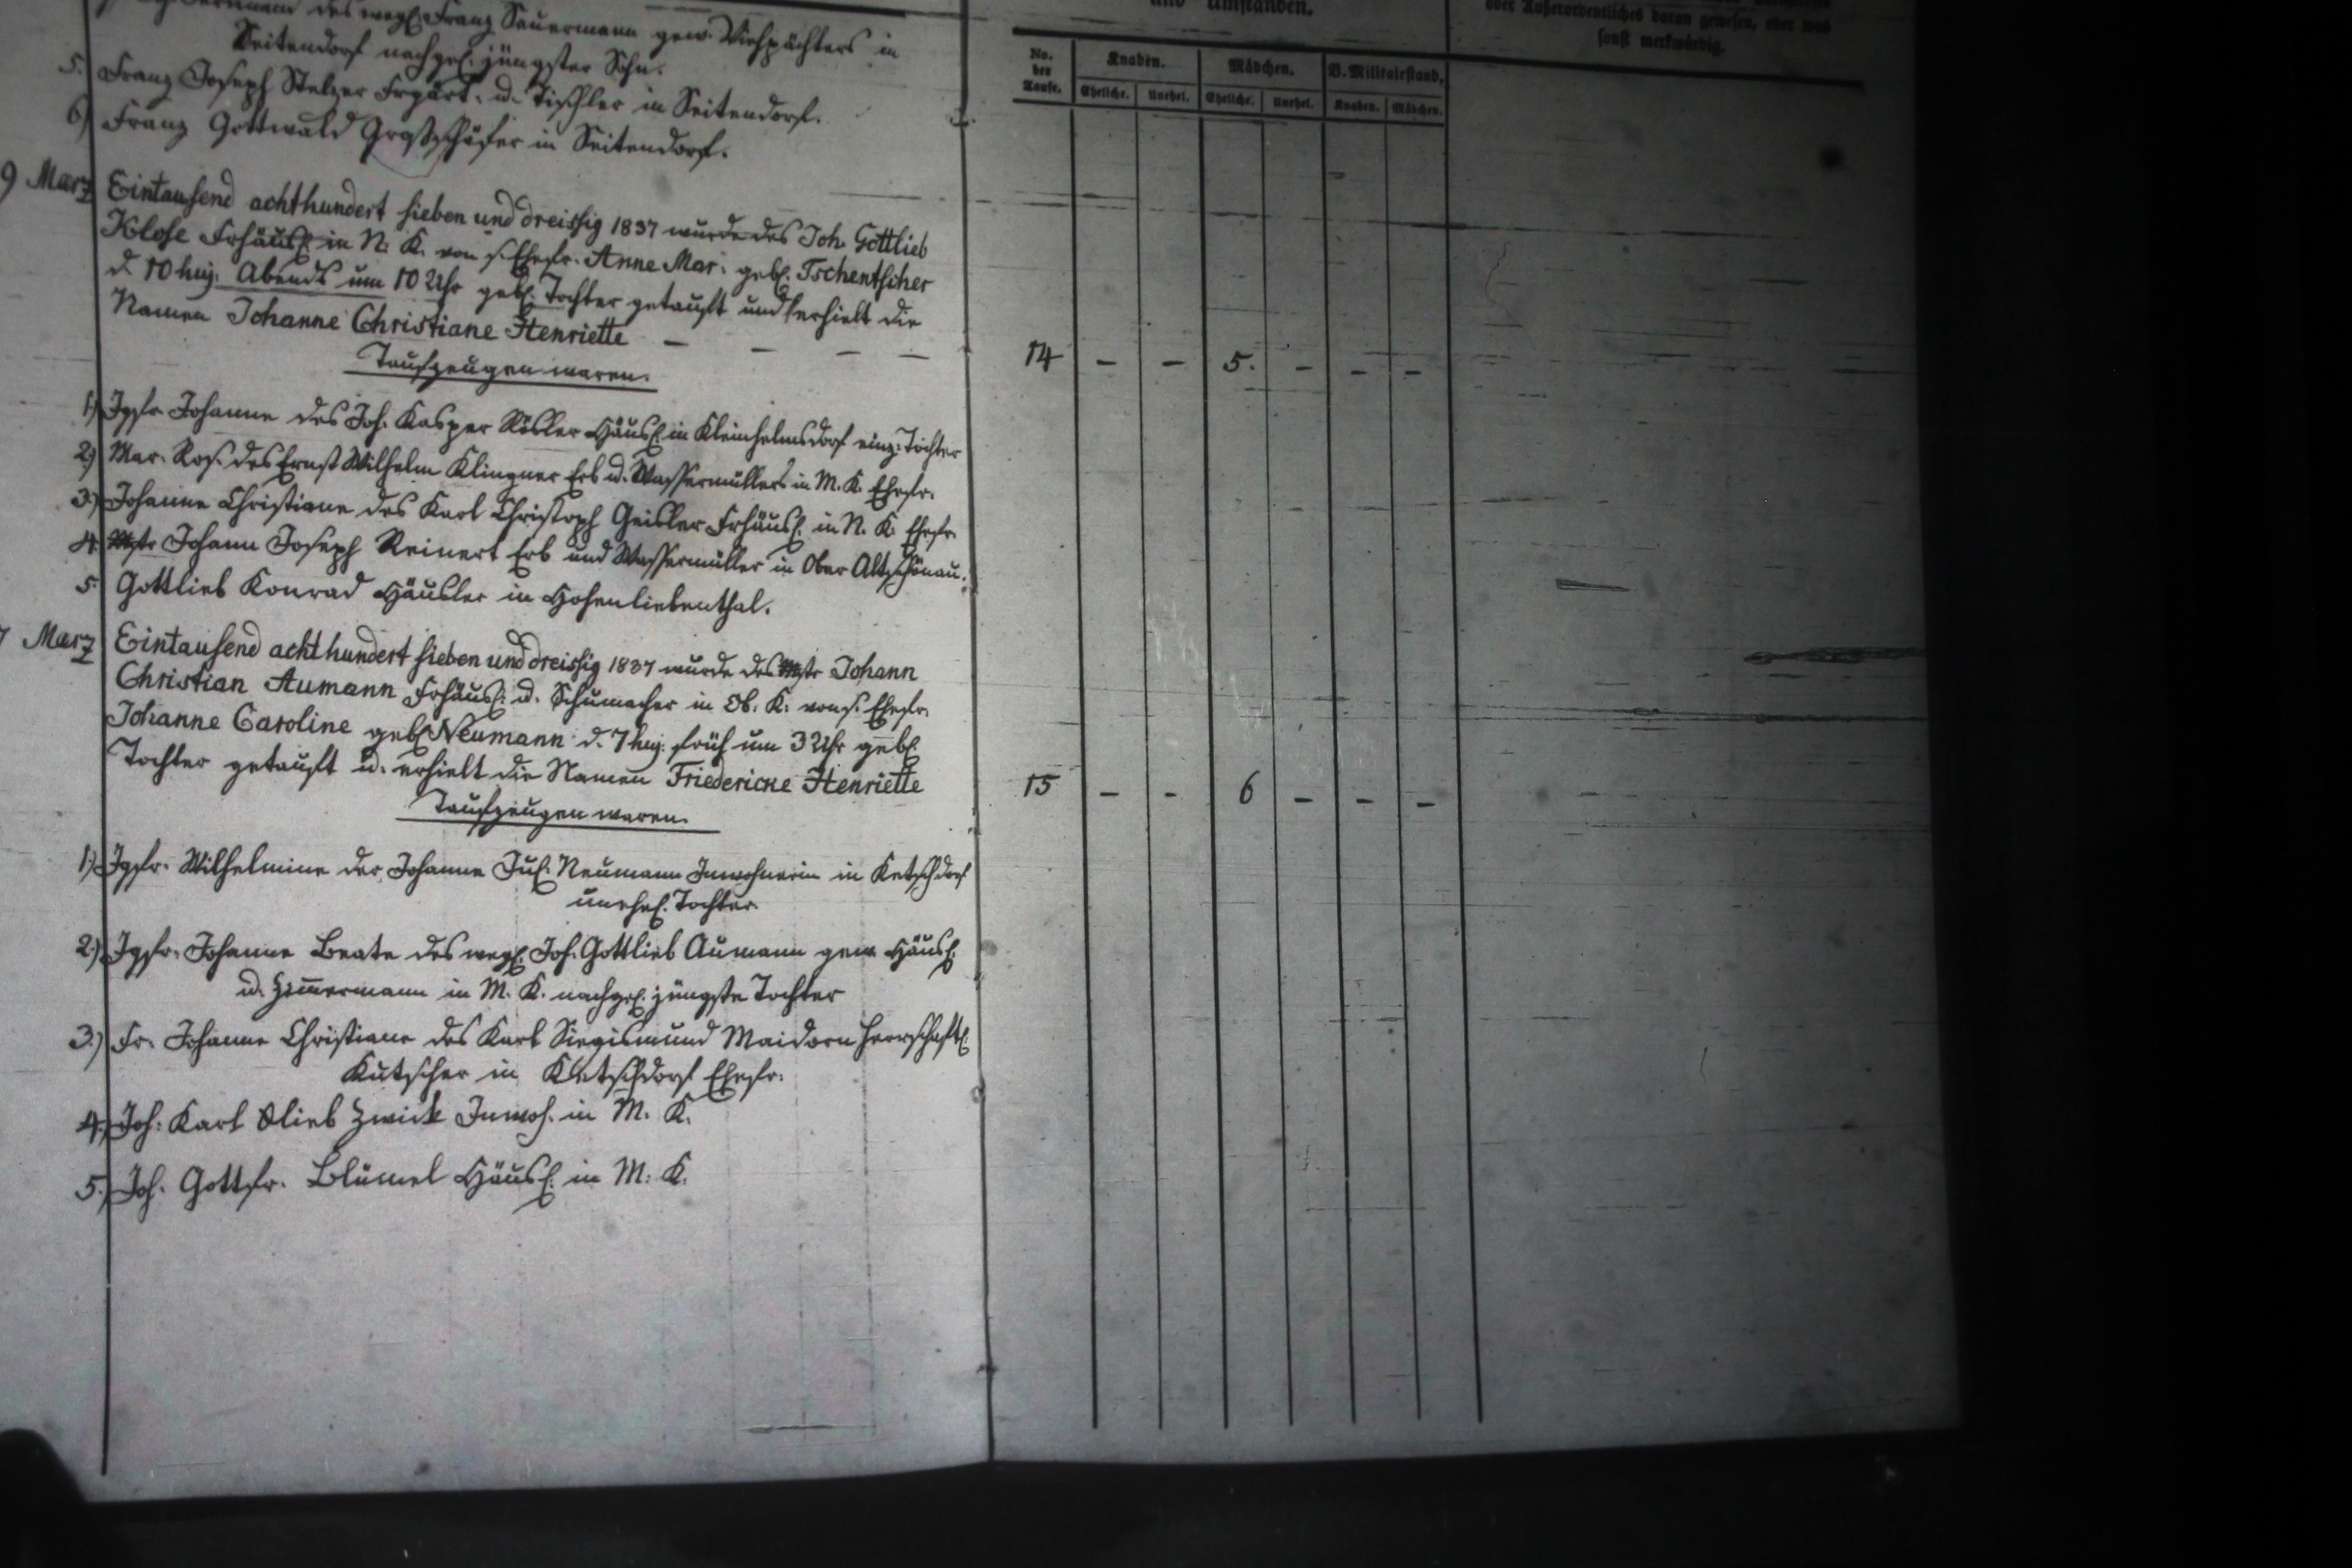 des wegl. Franz Sauermann gew. Viehpächters in
Seitendorf nachgel. jüngster Sohn.
5. Franz Joseph Stelzer Frgärt. u. Tischler in Seitendorf.
6) Franz Gottwald Großschäfer in Seitendorf.
9 März Eintausend achthundert sieben und dreissig 1837 wurde des Joh. Gottlieb
Klose Frhäusl. in N. K. von s. Ehefr. Anne Mar. gebl. Tschentscher
d. 10 huj. Abends um 10 Uhr gebl. Tochter getauft und erhielt die
Namen Johanne Christiane Henriette — — — —
Taufzeugen waren.
1.) Jgfr. Johanne des Joh. Kasper Rösler Häusl. in Kleinhelmsdorf einz. Tochter
2.) Mar. Ros. des Ernst Wilhelm Klingner Erb u. Wassermüllers in M. K. Ehefr.
3.) Johanne Christiane des Karl Christoph Geisler Frhäusl. in N. K. Ehefr.
4. Mstr Johann Joseph Reinert Erb und Wassermüller in Ober Altschönau.
5. Gottlieb Konrad Häusler in Hohenliebenthal.
7 März Eintausend achthundert sieben und dreissig 1837 wurde des Mstr Johann
Christian Aumann Frhäusl. u. Schumacher in Ob. K. von s. Ehefr.
Johanne Caroline gebl. Neumann d. 7 huj. früh um 3 Uhr gebl.
Tochter getauft u. erhielt die Namen Friedericke Henriette
Taufzeugen waren.
1.) Jgfr. Wilhelmine der Johanne Jul. Neumann Inwohnerin in Ketschdorf
unehel. Tochter
2.) Jgfr. Johanne Beate des wegl. Joh. Gottlieb Aumann gew. Häusl.
u. Zimmermann in M. K. nachgel. jüngste Tochter
3.) Fr. Johanne Christiane des Karl Siegismund Maidorn herrschaftl.
Kutscher in Ketschdorf Ehefr.
4.) Joh. Karl Glieb Zwick Inwoh. in M. K.
5.) Joh. Gottfr. Blümel Häusl. in M. K.
und Umständen.
oder Außerordentliches daran gewesen, oder was
sonst merkwürdig.
No. der Taufe. Knaben. Mädchen. B. Militairstand.
Eheliche. Unehel. Eheliche. Unehel. Knaben. Mädchen.
14 – – 5. – – –
15 – – 6 – – –